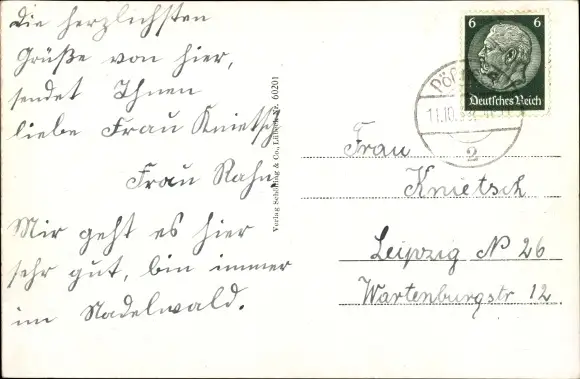 Die herzlichsten
Grüße von hier,
sendet Ihnen
liebe Frau Knietsch
Frau Rahn
Mir geht es hier
sehr gut, bin immer
im Nadelwald.
Verlag Schöning & Co., Lübeck Nr. 60201
6 6
Deutsches Reich
11.10.
2
Frau
Knietsch
Leipzig N 26
Wartenburgstr 12.